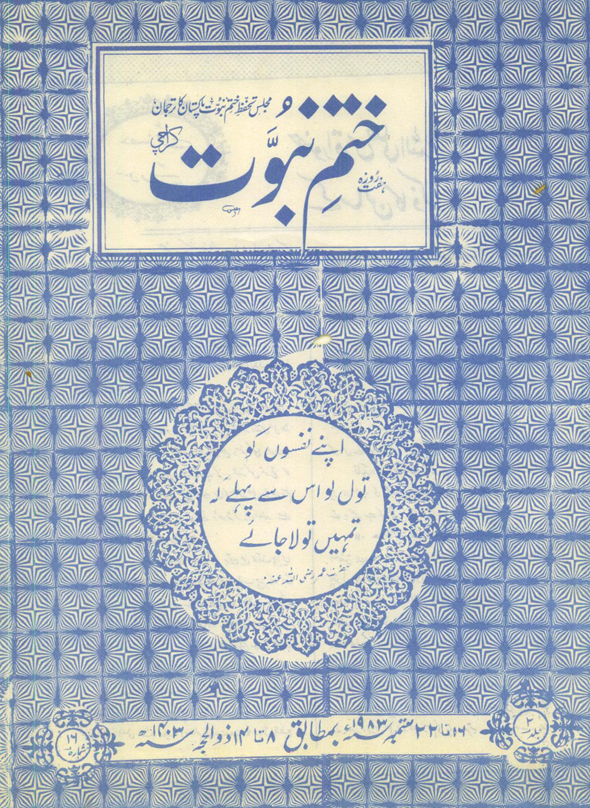 مجلس تحفظ ختم نبوت پاکستان کا ترجمان
ہفت روزہ
ختمِ نبوّت
کراچی
اپنے نفسوں کو
تول لو اس سے پہلے کہ
تمہیں تولا جائے
حضرت عمر رضی اللہ عنہ
جلد ۲
۱۶ تا ۲۲ ستمبر ۱۹۸۳ء بمطابق ۸ تا ۱۴ ذوالحجہ سنہ ۱۴۰۳ھ
شمارہ ۱۶